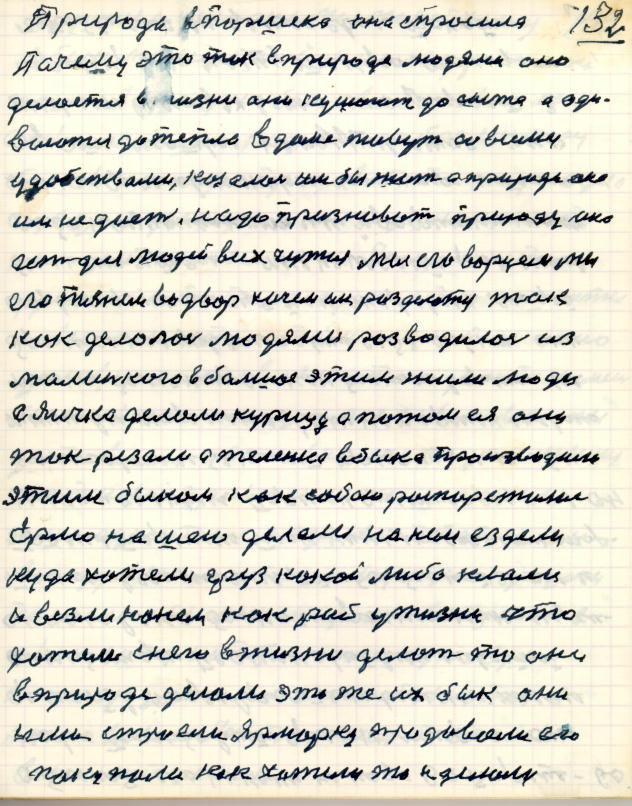 132
Природа впоршека она строила
Пачему это так вприроде людями оно
делоется вжизни ани кушоют досыта а оди-
волотся дотепла вдоме живут со всеми
удобствами, козолос им бы жит априрода оно
им недает. надо признават природу ана
ест для людей
его тянем водвор начем ик розделоти так
как делолос людями розводилос из
маленкого вбалшое этим жили люди
с яичка делоли курицу апотом ея они
так резали ателенка вбыка производили
этим быком как собою роспорежали
Ермо на шею делоли на нем ездели
куда хотели груз какой либо клали
и везли нанем как роб ужизни что
хотели снего вжизни делот то они
вприроде делоли это же их бык они
или строели Ярморку продовали его
покупали как хотели то и делоли